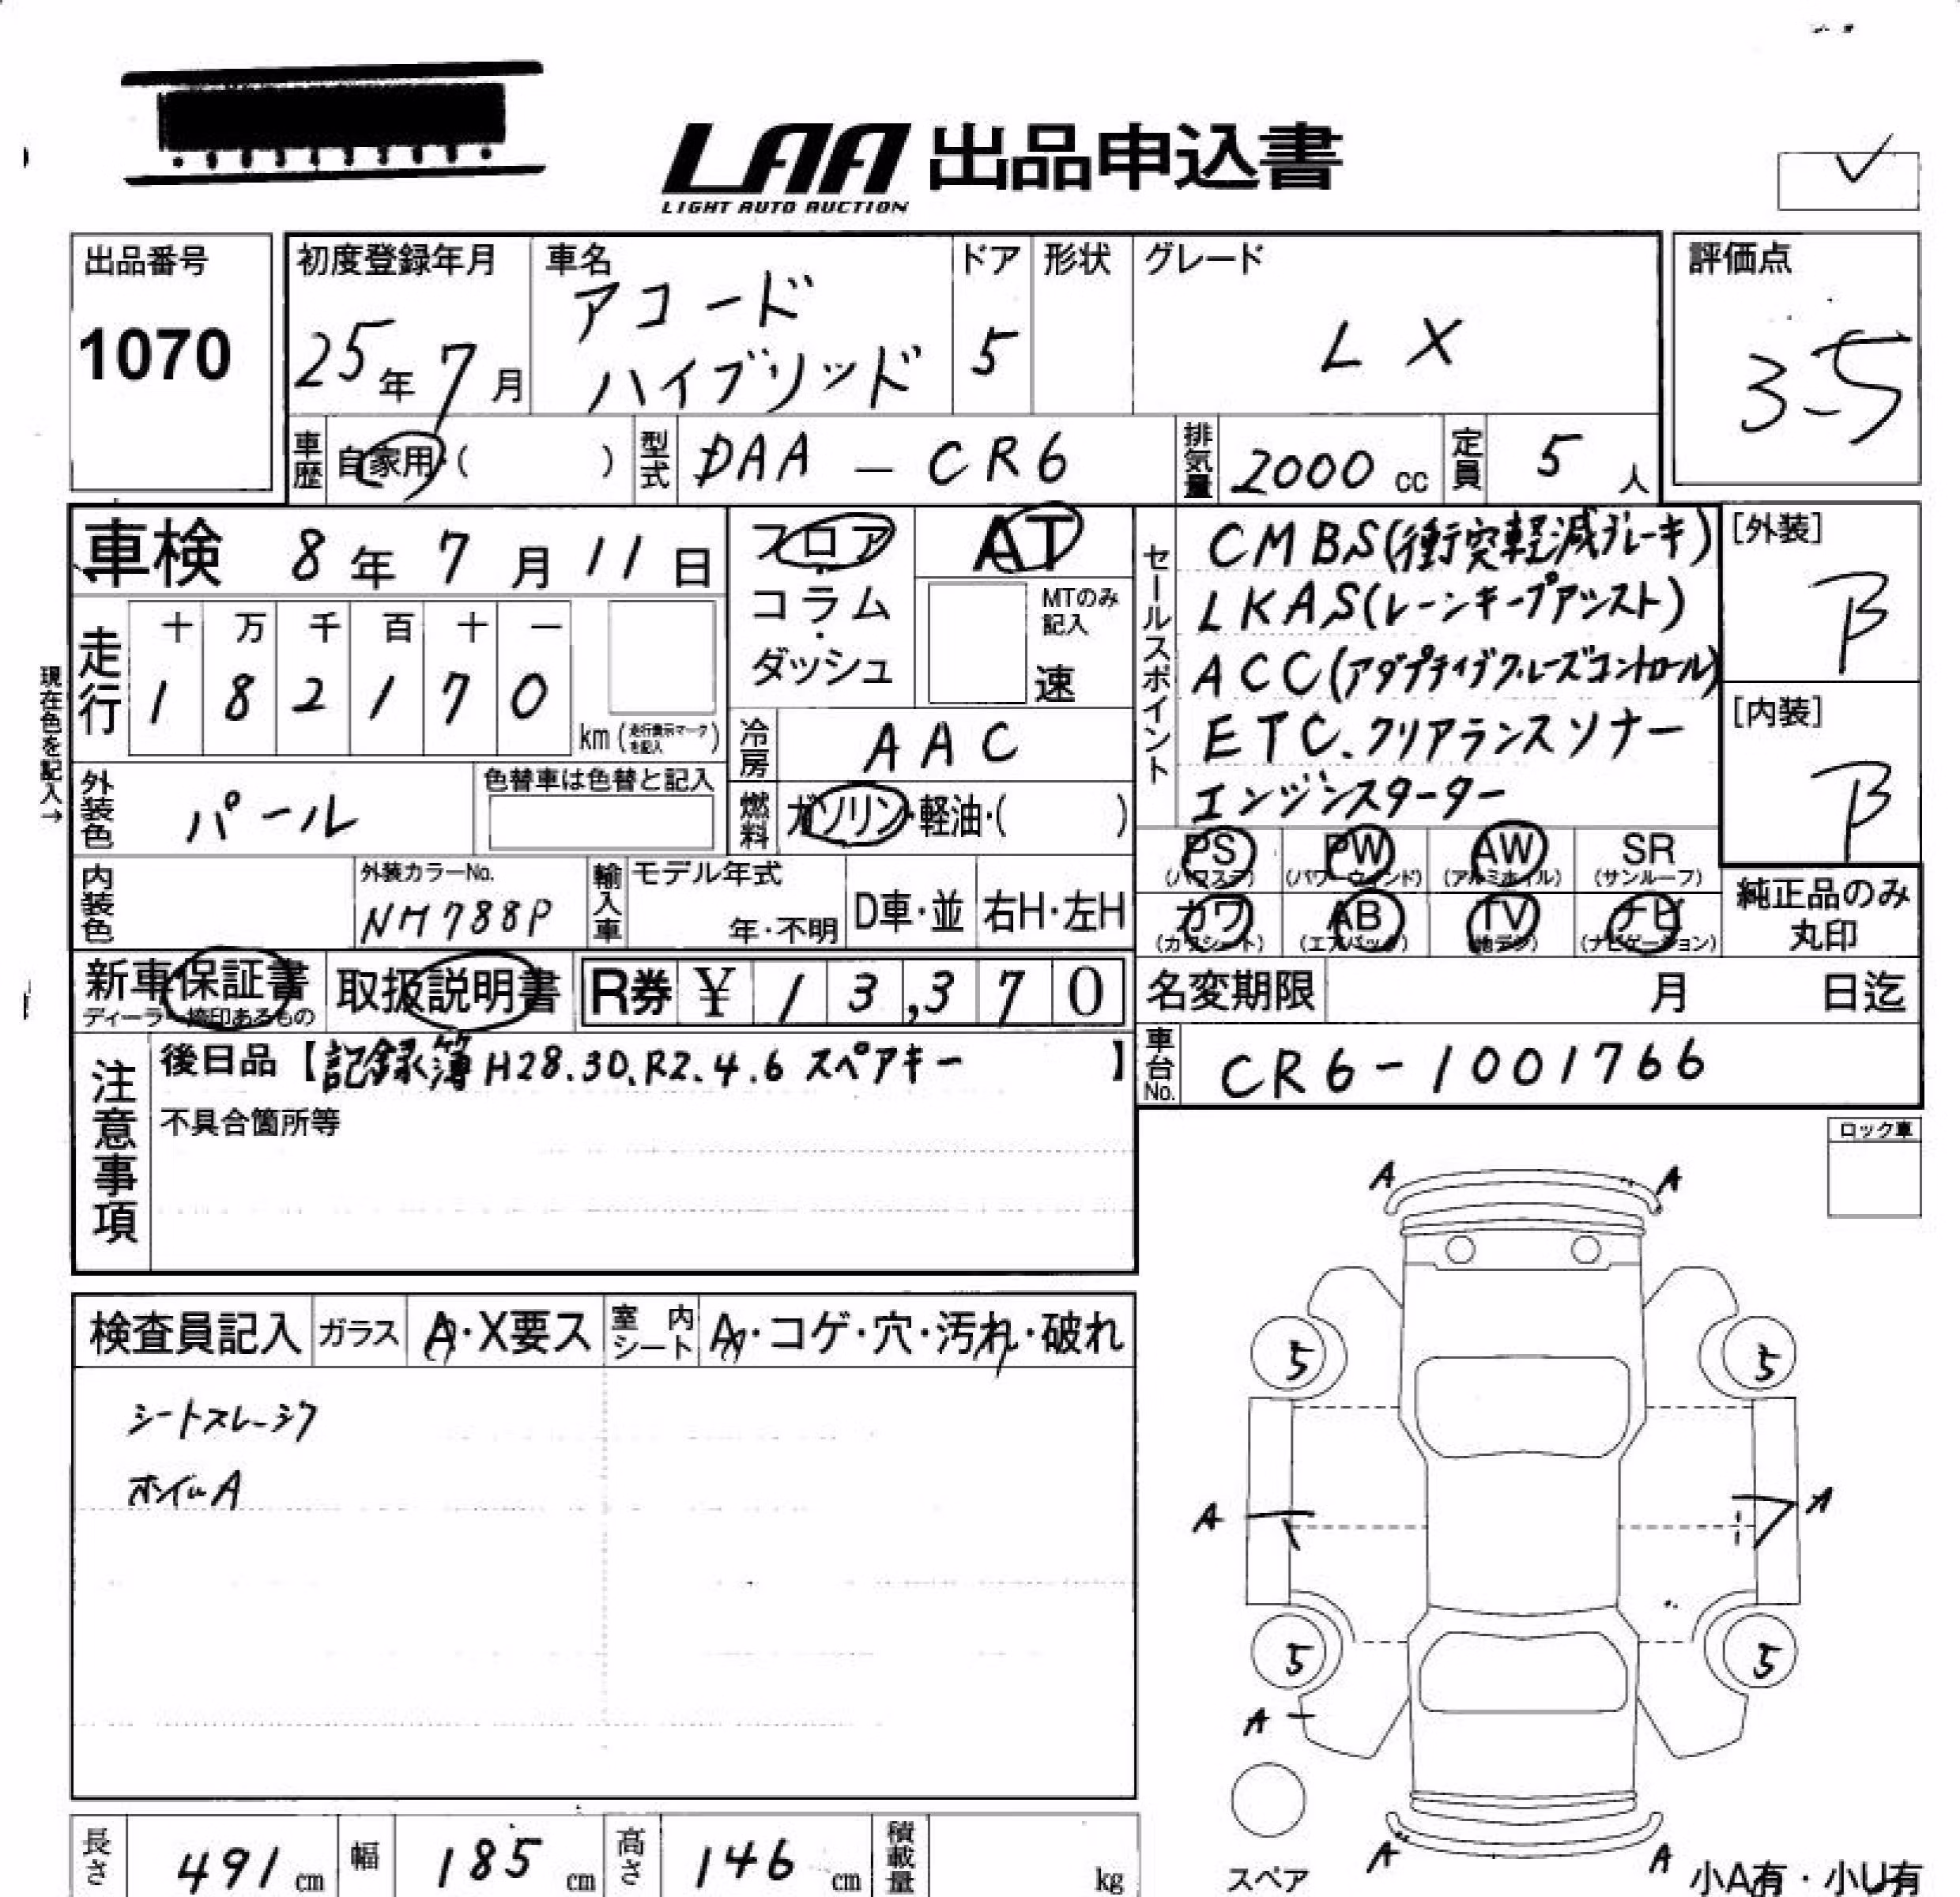 LAA 出品申込書
LIGHT AUTO AUCTION
出品番号
1070
初度登録年月
25年7月
車名
アコード
ハイブリッド
ドア
5
形状
グレード
LX
評価点
3.5
車歴
自家用・( )
型式
DAA-CR6
排気量
2000cc
定員
5人
車検 8年7月11日
フロア・コラム・ダッシュ
AT
MTのみ記入
速
現在色を記入→
走行
十万千百十一
182170
km(走行表示マークを記入)
冷房
AAC
外装色
パール
色替車は色替と記入
燃料
ガソリン・軽油・( )
内装色
外装カラーNo.
NH788P
輸入車
モデル年式
年・不明
D車・並
右H・左H
セールスポイント
CMBS(衝突軽減ブレーキ)
LKAS(レーンキープアシスト)
ACC(アダプティブクルーズコントロール)
ETC.クリアランスソナー
エンジンスターター
[外装]
B
[内装]
B
PS
(パワステ)
PW
(パワーウィンド)
AW
(アルミホイル)
SR
(サンルーフ)
カワ
(カワシート)
AB
(エアバック)
TV
(地デジ)
ナビ
(ナビゲーション)
純正品のみ
丸印
新車保証書
取扱説明書
R券 ¥ 13,370
名変期限 月 日迄
車台No.
CR6-1001766
注意事項
後日品【記録簿H28.30.R2.4.6 スペアキー】
不具合箇所等
ロック車
検査員記入
ガラス
A・X要ス
室内シート
A・コゲ・穴・汚れ・破れ
シートスレ・シワ
ホイルA
A A
5 5
A A
5 5
A
A A
スペア
小A有・小U有
長さ 491cm
幅 185cm
高さ 146cm
積載量 kg